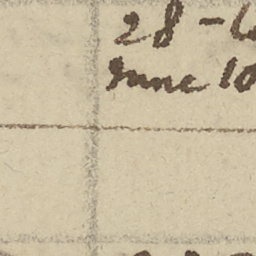 28 -
June 10